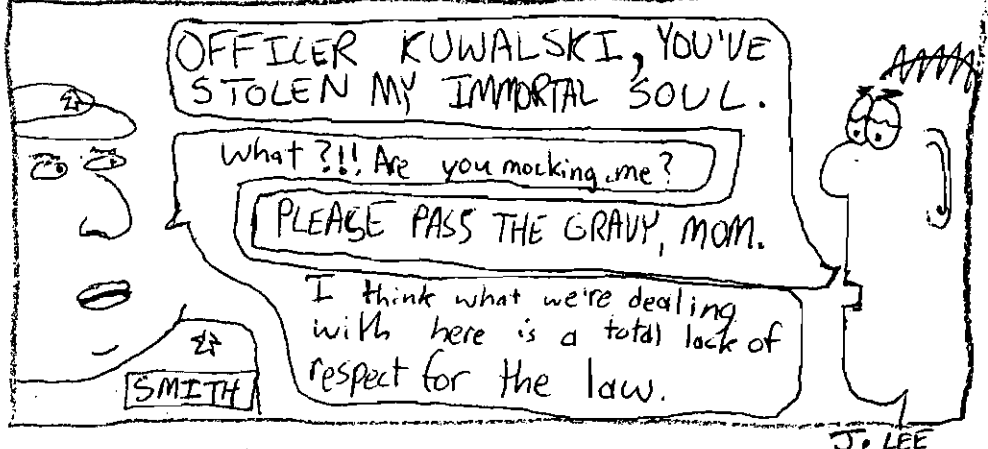 OFFICER KUWALSKI, YOU'VE
STOLEN MY IMMORTAL SOUL.
What?!! Are you mocking me?
PLEASE PASS THE GRAVY, MOM.
I think what we're dealing
with here is a total lack of
respect for the law.
SMITH
J. LEE